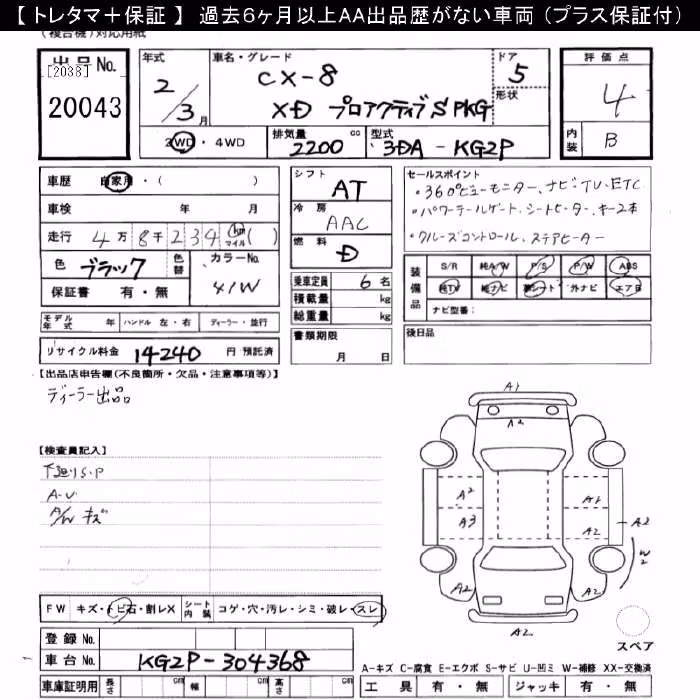 【トレタマ＋保証】 過去6ヶ月以上AA出品歴がない車両（プラス保証付）
(複合機)対応用紙
出品No.
[2038]
20043
年式
2/3月
車名・グレード
CX-8
XD プロアクティブS PKG
ドア
5
形状
評価点
4
内装
B
2WD・4WD
排気量 2200 cc
型式 3DA-KG2P
車歴 自家用・( )
車検 年 月
走行 4万8千234 km マイル ( )
色 ブラック 色替
カラーNo. 41W
保証書 有・無
シフト AT
冷房 AAC
燃料 D
乗車定員 6名
積載量 kg
総重量 kg
セールスポイント
・360°ビューモニター、ナビTV、ETC
・パワーテールゲート、シートヒーター、キー2本
・クルーズコントロール、ステアヒーター
装備品
S/R 純A/W P/S P/W ABS
純TV 純ナビ 革シート 外ナビ エアB
ナビ型番:
モデル年式 年 ハンドル 左・右 ディーラー・並行
書類期限
月 日
後日品
リサイクル料金 14240 円 預託済
【出品店申告欄(不良箇所・欠品・注意事項等)】
ディーラー出品
【検査員記入】
下廻りS.P
A・U
A/W キズ
A1
A2
A2
A1
A3
A2
A2
W2
A2
A2
A2
スペア
FW キズ・トビ石・割レX
シート内装 コゲ・穴・汚レ・シミ・破レ・スレ
登録No.
車台No. KG2P-304368
A-キズ C-腐食 E-エクボ S-サビ U-凹ミ W-補修 XX-交換済
車庫証明用 長さ cm 幅 cm 高さ cm
工具 有・無 ジャッキ 有・無